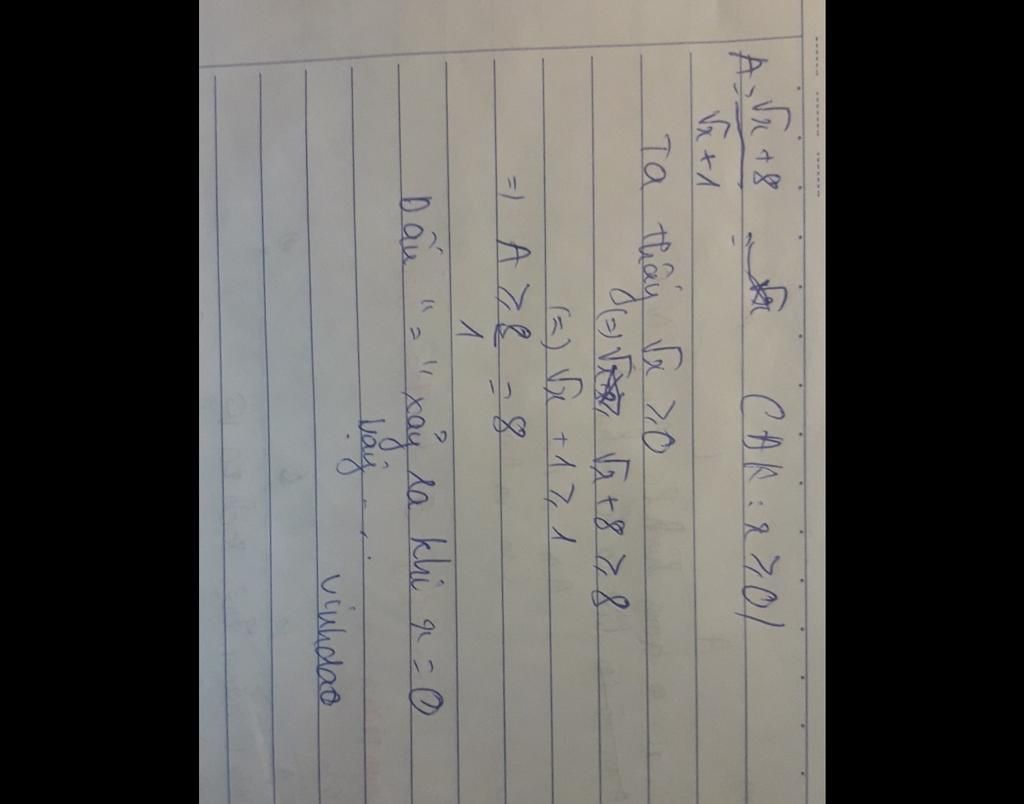 A = √x + 8 / √x + 1 = (ĐK: x ≥ 0)
Ta thấy √x ≥ 0
(=) √x + 8 ≥ 8
(=) √x + 1 ≥ 1
=) A ≥ 8/1 = 8
Dấu "=" xảy ra khi x = 0
Vậy ...
vinhdao